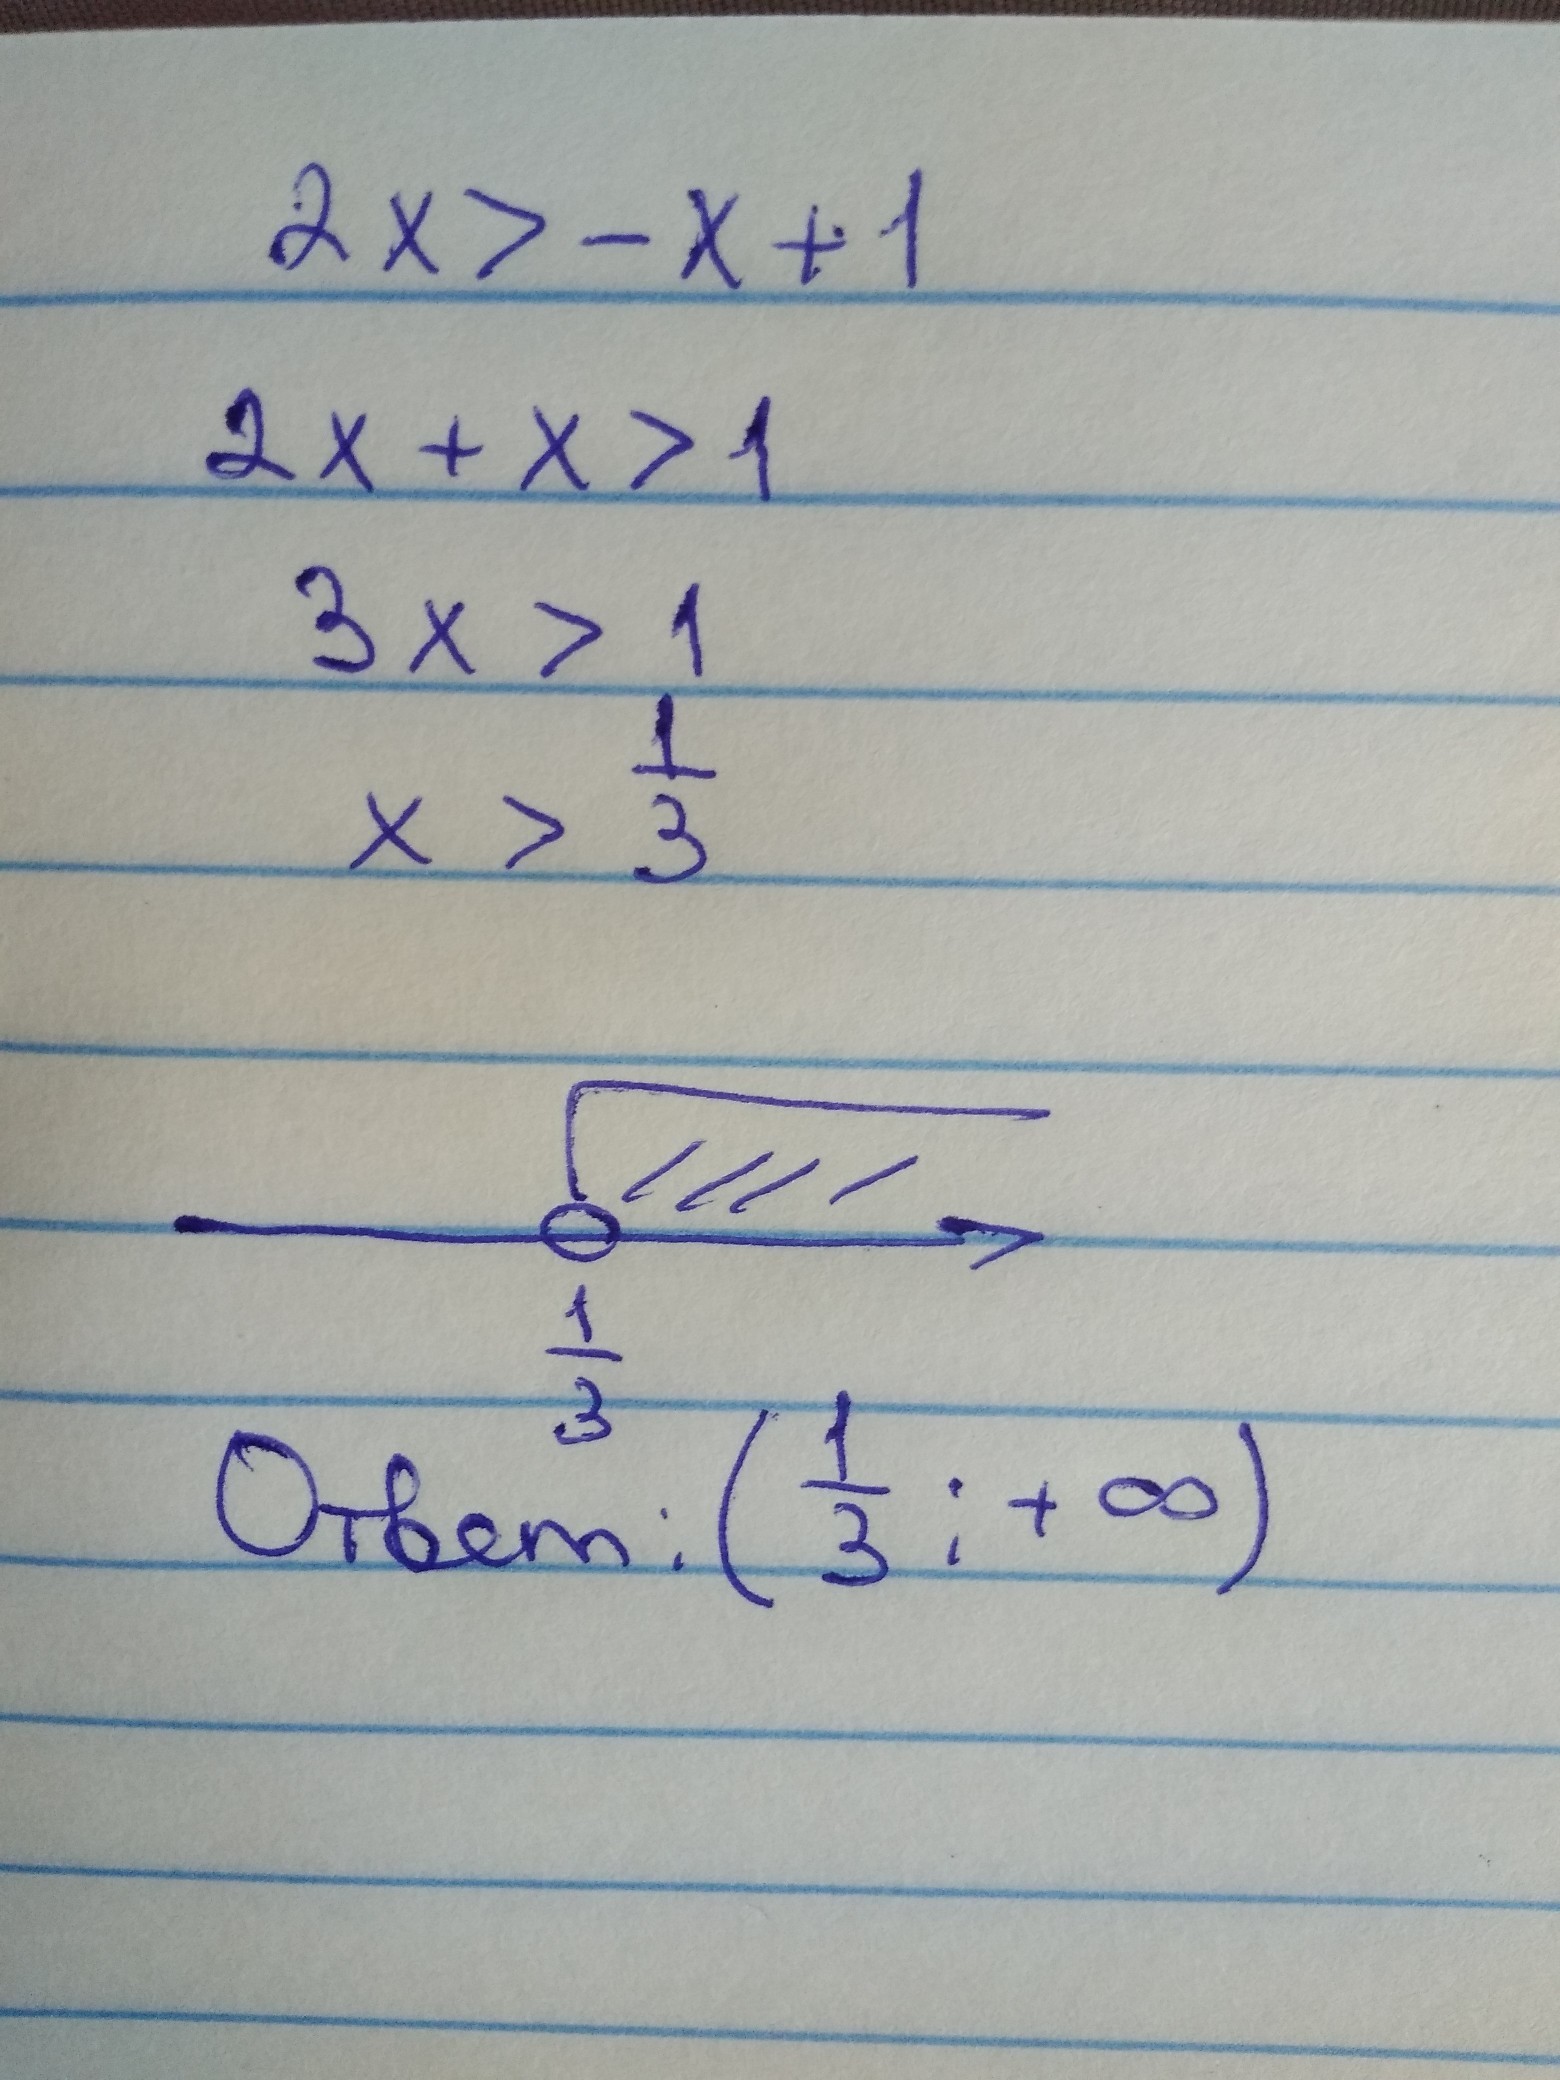 2x > -x + 1
2x + x > 1
3x > 1
x > 1/3
1/3
Ответ: (1/3 ; + ∞)